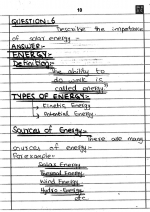 19
QUESTION:6
Describe the importance
of solar energy:-
ANSWER:-
ENERGY:-
Definition:-
"The ability to
do work is
called energy"
TYPES OF ENERGY:-
Kinetic Energy
Potential Energy.
Sources of Energy:-
There are many
sources of energy:-
For example:-
Solar Energy
Thermal Energy
Wind Energy
Hydro-Energy
etc.